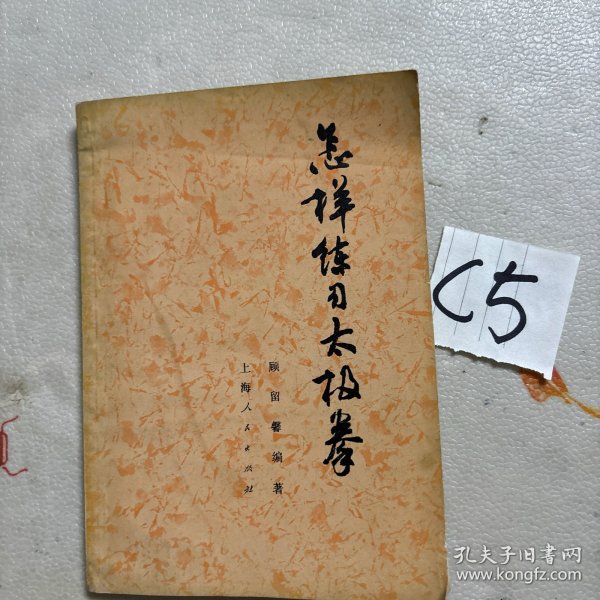 怎样练习太极拳
顾留馨编著
上海人民出版社
C5
孔夫子旧书网
www.kongfz.com